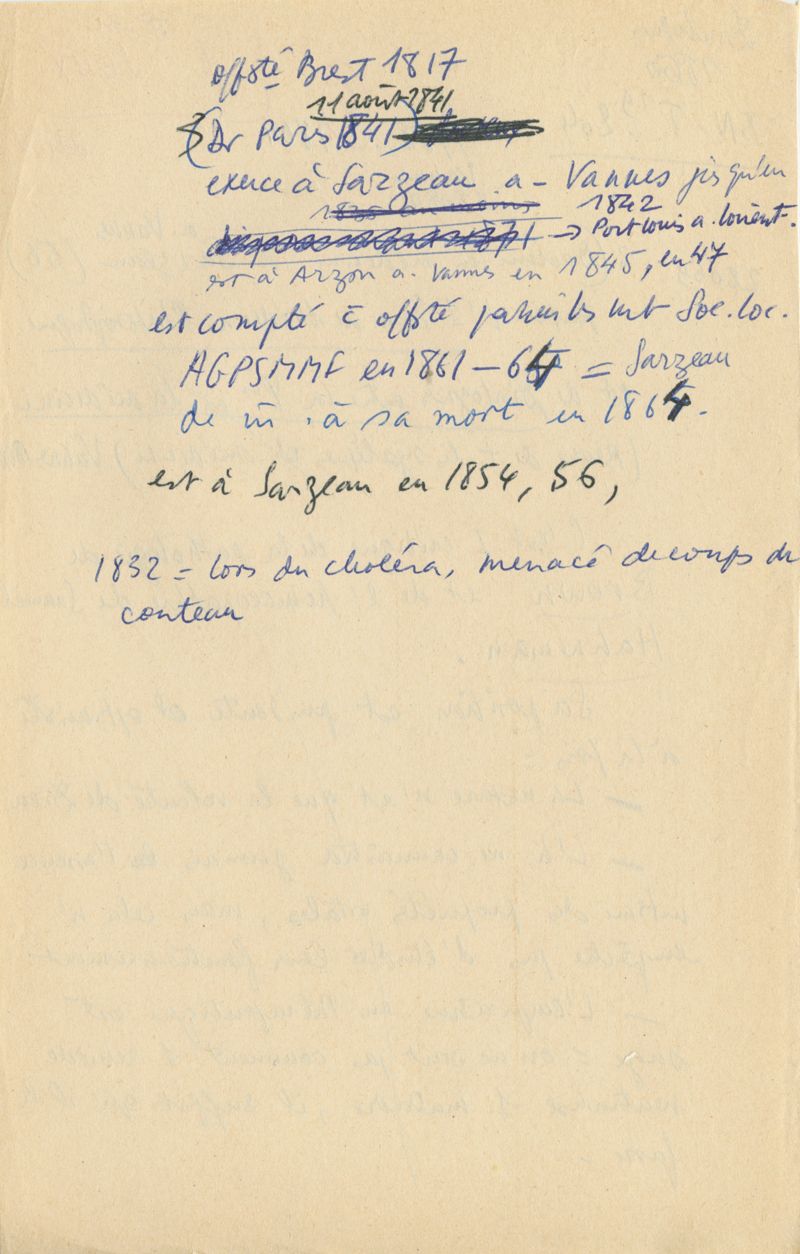 offsté Brest 1817
11 août 1841
(Dr Paris 1841)
exerce à Sarzeau a - Vannes jusqu'en
1835 au moins 1842
→ Port Louis a. Lorient.
est à Arzon a. Vannes en 1845, en 47
est compté c offsté parmi les mb Soc. loc.
AGPSMMF en 1861 - 64 = Sarzeau
de m . à sa mort en 1864.
est à Sarzeau en 1854, 56,
1832 = lors du choléra, menacé de coups de
couteau